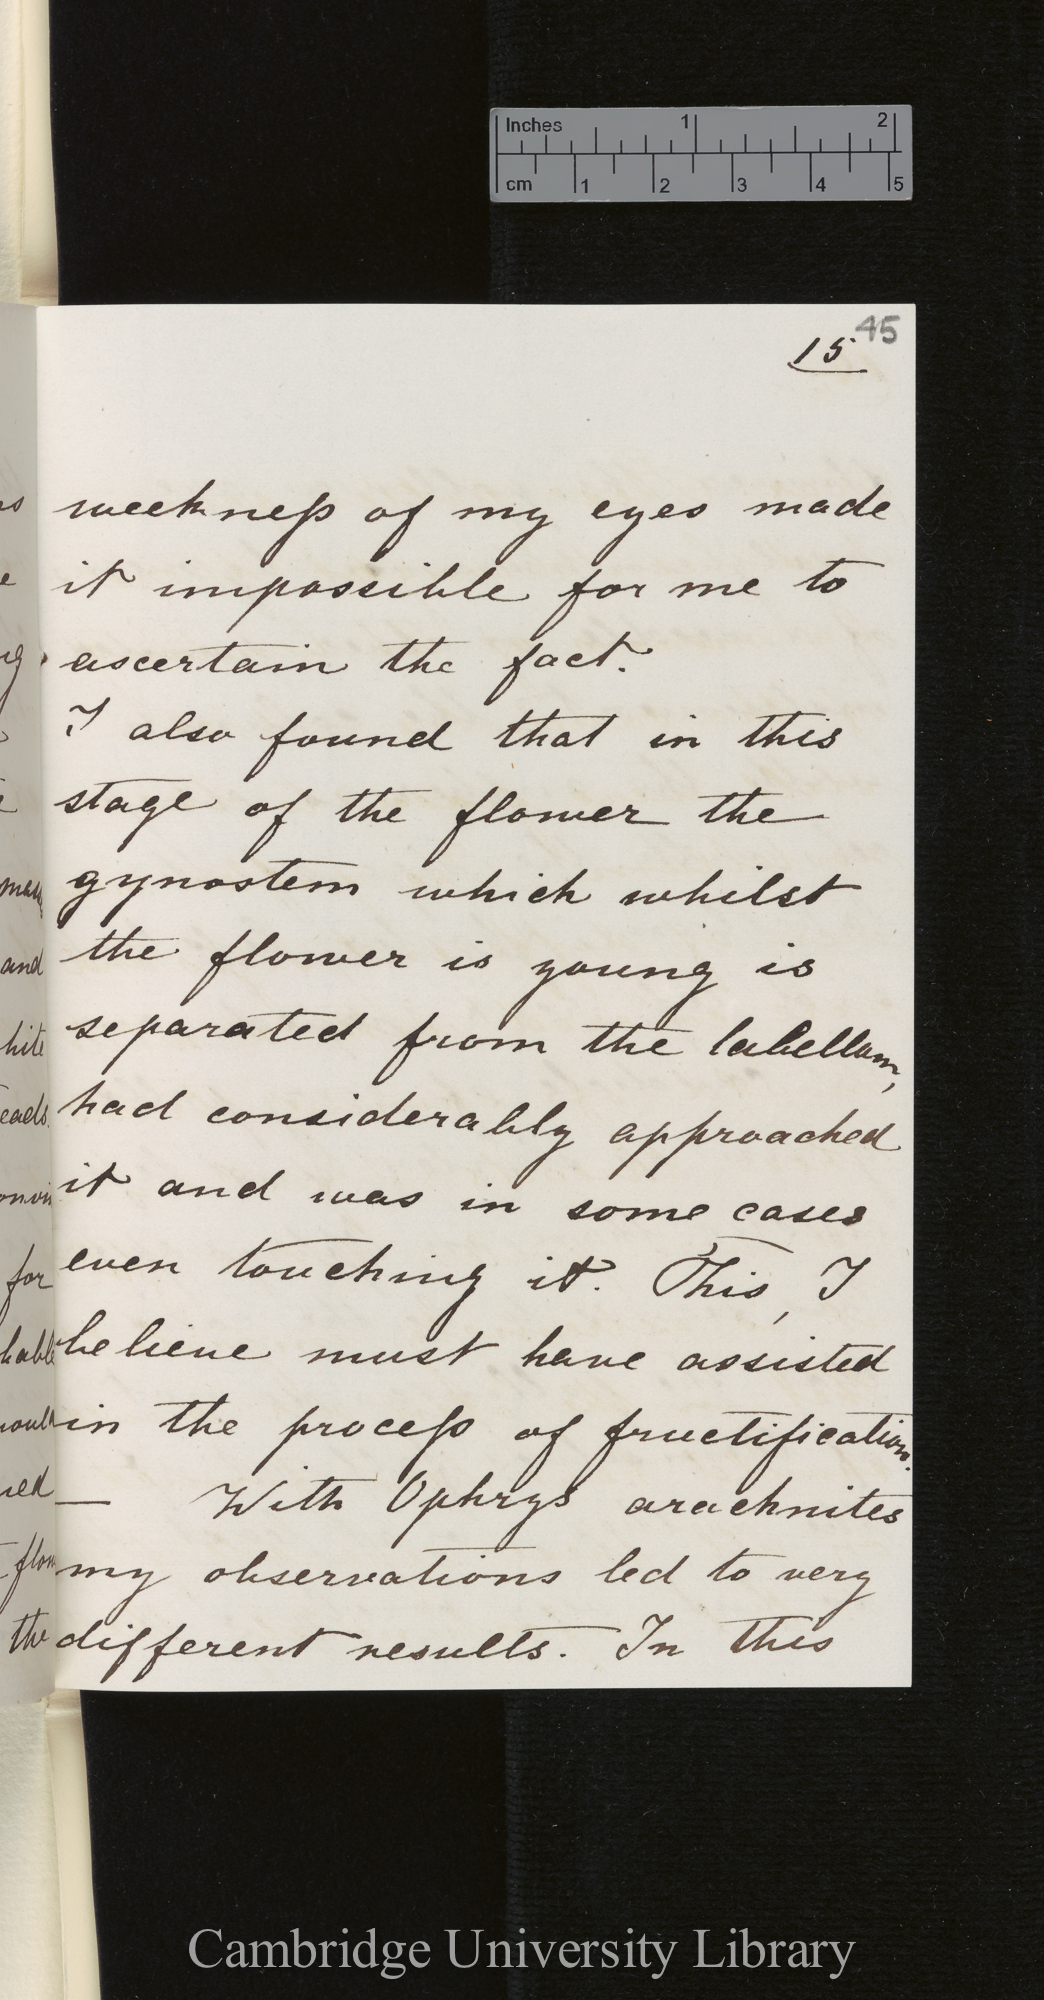 Inches 1 2
cm 1 2 3 4 5
45
15
weekneſs of my eyes made
it impossible for me to
ascertain the fact.
I also found that in this
stage of the flower the
gynostem which whilst
the flower is young is
separated from the labellum,
had considerably approached
it and was in some cases
even touching it. This, I
believe must have assisted
in the proceſs of fructification.
— With Ophrys arachnites
my observations led to very
different results. In this
mass
and
for
the
Cambridge University Library